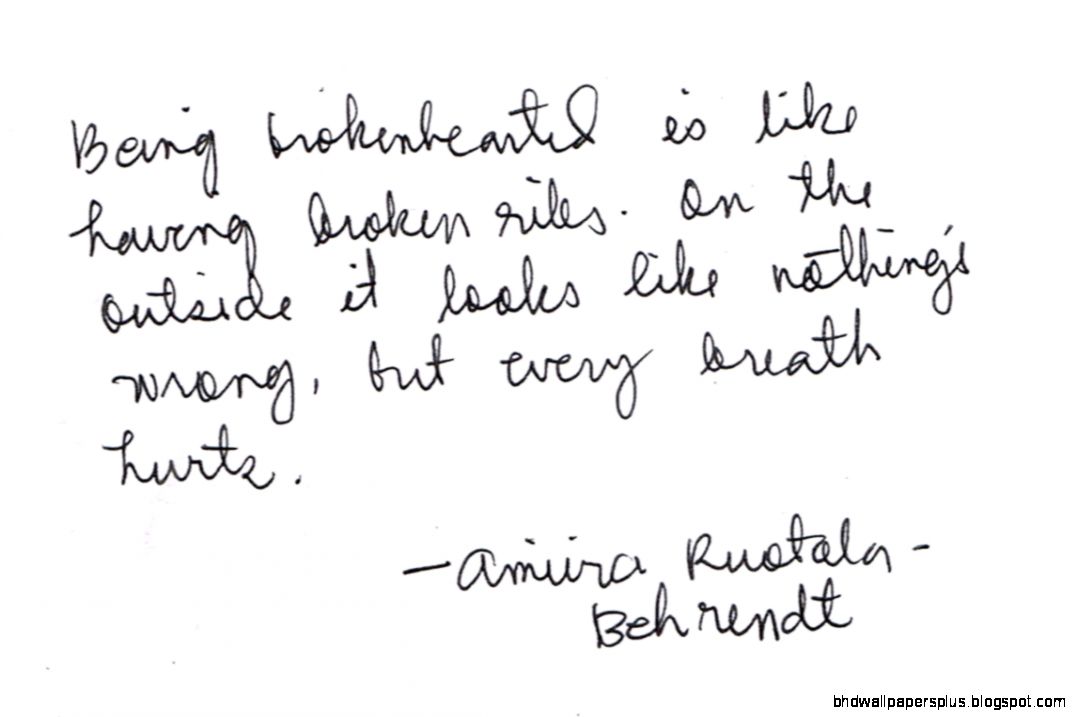 Being brokenhearted is like
having broken ribs. On the
outside it looks like nothing's
wrong, but every breath
hurts.
—Amiira Ruotola-
Behrendt
bhdwallpapersplus.blogspot.com